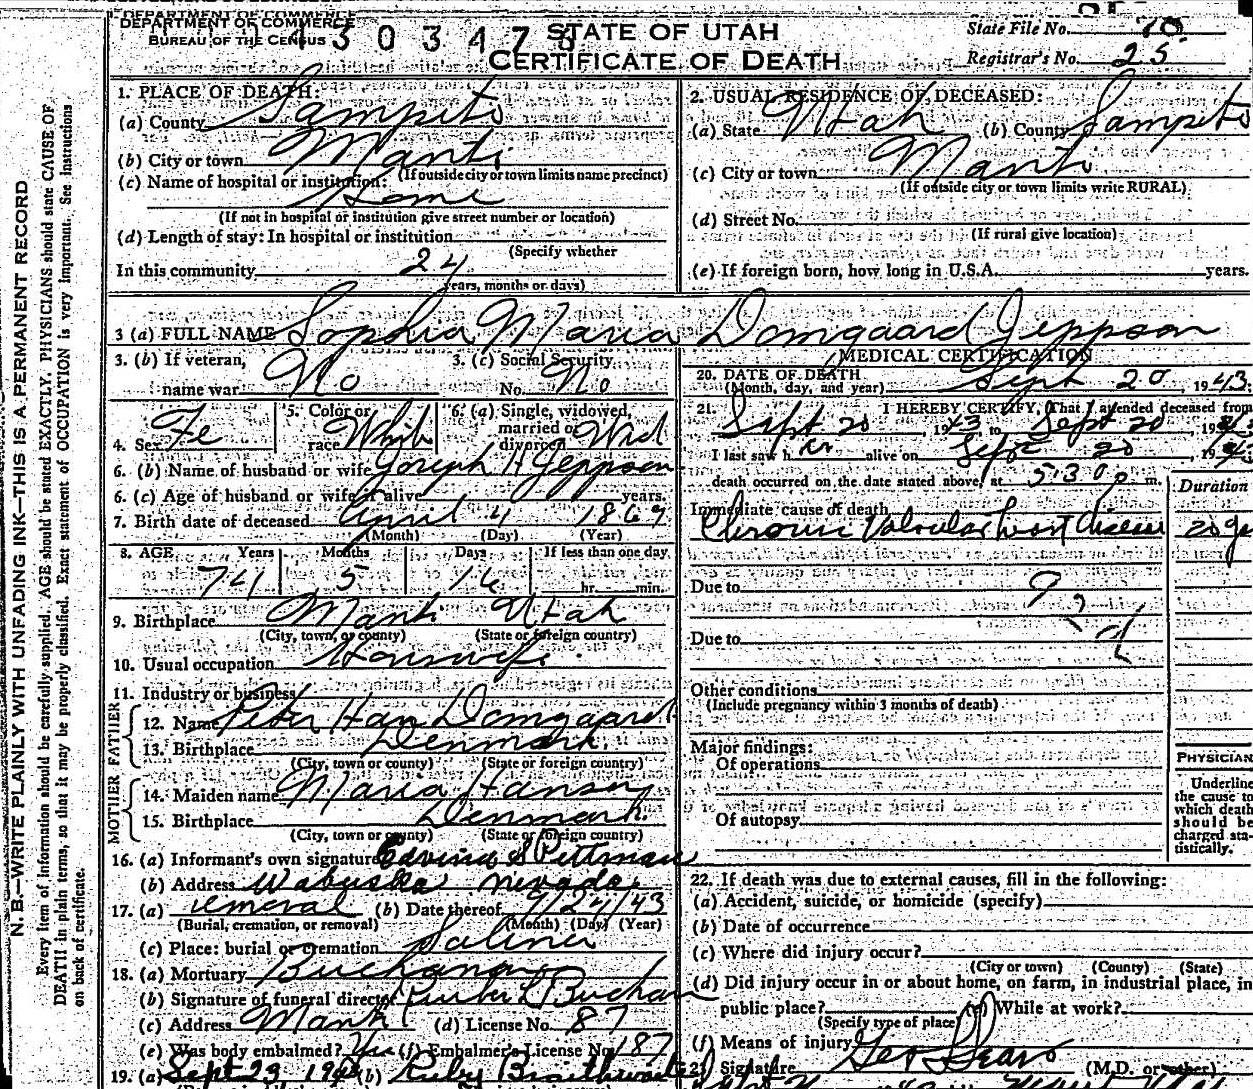 DEPARTMENT OF COMMERCE
BUREAU OF THE CENSUS
4303478
STATE OF UTAH
CERTIFICATE OF DEATH
State File No. 70
Registrar's No. 25
N. B.—WRITE PLAINLY WITH UNFADING INK—THIS IS A PERMANENT RECORD
Every item of information should be carefully supplied. AGE should be stated EXACTLY. PHYSICIANS should state CAUSE OF
DEATH in plain terms, so that it may be properly classified. Exact statement of OCCUPATION is very important. See instructions
on back of certificate.
1. PLACE OF DEATH:
(a) County Sanpete
(b) City or town Manti
(If outside city or town limits name precinct)
(c) Name of hospital or institution:
Home
(If not in hospital or institution give street number or location)
(d) Length of stay: In hospital or institution
(Specify whether
In this community 24
years, months or days)
2. USUAL RESIDENCE OF DECEASED:
(a) State Utah (b) County Sanpete
(c) City or town Manti
(If outside city or town limits write RURAL)
(d) Street No.
(If rural give location)
(e) If foreign born, how long in U.S.A. years.
3 (a) FULL NAME Sophia Maria Domgaard Jeppson
3. (b) If veteran,
name war No
3. (c) Social Security
No. No
4. Sex Fe
5. Color or
race White
6. (a) Single, widowed,
married or
divorced Wid
6. (b) Name of husband or wife Joseph H Jeppson
6. (c) Age of husband or wife if alive years.
7. Birth date of deceased April 4 1869
(Month) (Day) (Year)
8. AGE Years Months Days If less than one day
74 5 16 hr. min.
9. Birthplace Manti Utah
(City, town, or county) (State or foreign country)
10. Usual occupation Housewife
11. Industry or business
FATHER
12. Name Peter Han Domgaard
13. Birthplace Denmark.
(City, town or county) (State or foreign country)
MOTHER
14. Maiden name Maria Hansen
15. Birthplace Denmark.
(City, town or county) (State or foreign country)
16. (a) Informant's own signature Edvina S Pittman
(b) Address Wabuska Nevada
17. (a) removal (b) Date thereof 9/24/43
(Burial, cremation, or removal) (Month) (Day) (Year)
(c) Place: burial or cremation Salina
18. (a) Mortuary Buchanan
(b) Signature of funeral director Buchan
(c) Address Manti (d) License No. 87
(e) Was body embalmed? Yes (f) Embalmer's License No. 187
19. (a) Sept 23, (b) Ruby Braithwaite
MEDICAL CERTIFICATION
20. DATE OF DEATH
(Month, day, and year) Sept 20, 1943;
21. I HEREBY CERTIFY, That I attended deceased from
Sept 20, 1943 to Sept 20, 19
I last saw h er alive on Sept 20, 19
death occurred on the date stated above, at 5:30 p. m.
Duration
Immediate cause of death
Chronic Valvular heart disease 20 y
Due to
Due to
Other conditions
(Include pregnancy within 3 months of death)
Major findings:
Of operations
Of autopsy
PHYSICIAN
Underline
the cause to
which death
should be
charged sta-
tistically.
22. If death was due to external causes, fill in the following:
(a) Accident, suicide, or homicide (specify)
(b) Date of occurrence
(c) Where did injury occur?
(City or town) (County) (State)
(d) Did injury occur in or about home, on farm, in industrial place, in
public place? (e) While at work?
(Specify type of place)
(f) Means of injury
Signature Geo L Sears (M.D. or other)